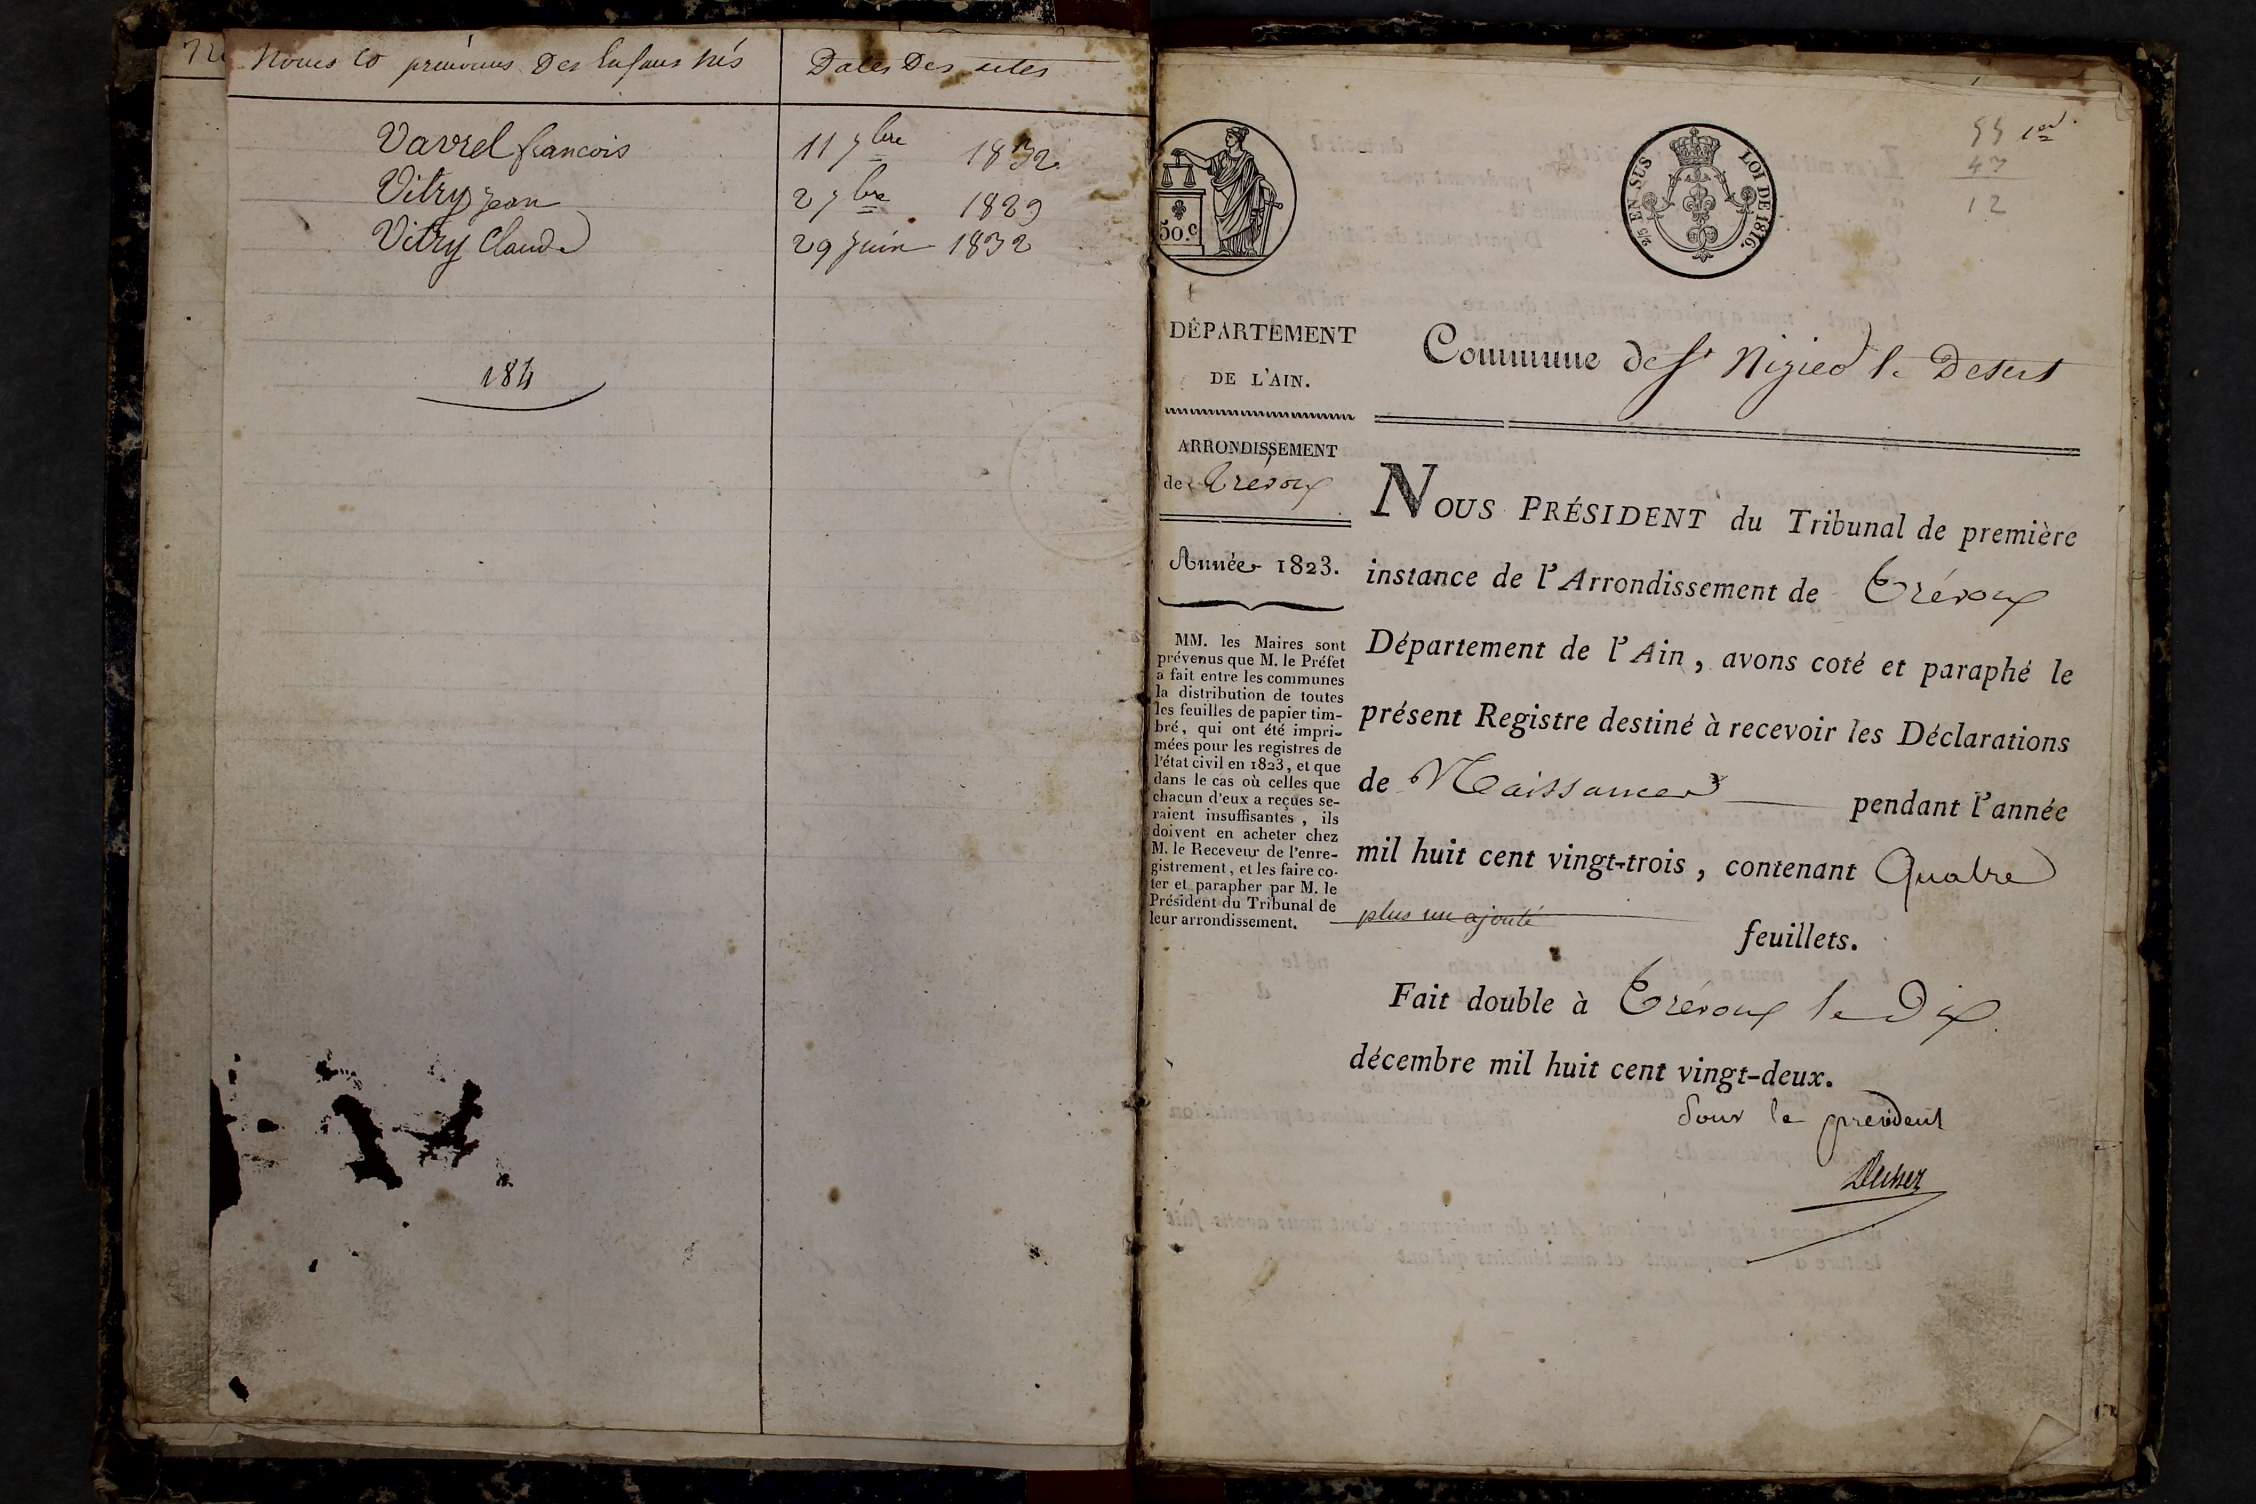 Noms et prénoms Des Enfans nés
Dates Des actes
Vavrel francois 11 7bre 1832
Vitry jean 2 7bre 1829
Vitry Claude 29 juin 1832
184
50.c
2/5 EN SUS LOI DE 1816.
55 1er
43
12
DÉPARTEMENT
DE L'AIN.
ARRONDISSEMENT
de Trévoux
Année 1823.
MM. les Maires sont
prévenus que M. le Préfet
a fait entre les communes
la distribution de toutes
les feuilles de papier tim-
bré, qui ont été impri-
mées pour les registres de
l'état civil en 1823, et que
dans le cas où celles que
chacun d'eux a reçues se-
raient insuffisantes, ils
doivent en acheter chez
M. le Receveur de l'enre-
gistrement, et les faire co-
ter et parapher par M. le
Président du Tribunal de
leur arrondissement.
Commune de St Nizier le Desert
NOUS PRÉSIDENT du Tribunal de première
instance de l'Arrondissement de Trévoux
Département de l'Ain, avons coté et paraphé le
présent Registre destiné à recevoir les Déclarations
de Naissances pendant l'année
mil huit cent vingt-trois, contenant Quatre
plus un ajouté
feuillets.
Fait double à Trévoux le Dix
décembre mil huit cent vingt-deux.
Pour le president